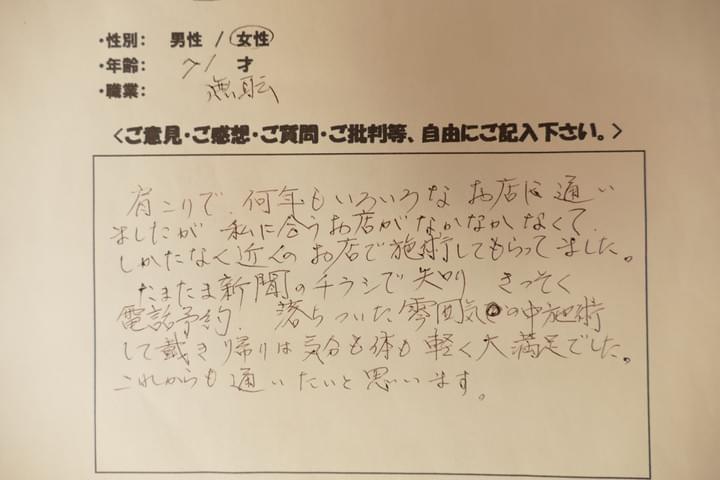 ・性別： 男性 / 女性
・年齢： 71 才
・職業： 無職
＜ご意見・ご感想・ご質問・ご批判等、自由にご記入下さい。＞
肩こりで、何年もいろいろな お店に通い
ましたが 私に合うお店がなかなかなくて、
しかたなく近くのお店で施術してもらってました。
たまたま新聞のチラシで知り さっそく
電話予約、 落ちついた雰囲気の中施術
して戴き帰りは気分も体も軽く大満足でした。
これからも通いたいと思います。